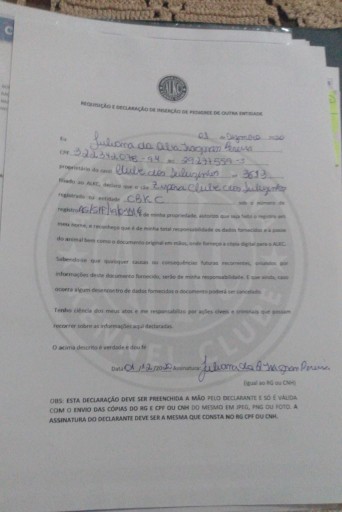 REQUISIÇÃO E DECLARAÇÃO DE INSERÇÃO DE PEDIGREE DE OUTRA ENTIDADE
03 Dezembro
Eu Juliana da
CPF RG
proprietário do canil Clube das
filiado ao ALKC, declaro que o cão Clube das
registrado na entidade CBKC sob o número de
registro é de minha propriedade, autorizo que seja feito o registro em
meu nome, e reconheço que é de minha total responsabilidade os dados fornecidos e a posse
do animal bem como o documento original em mãos, onde forneço a cópia digital para o ALKC.
Subentende que quaisquer causas ou consequências futuras recorrentes, oriundos por
informações deste documento fornecido, serão de minha responsabilidade. E que ainda, caso
ocorra algum desencontro de dados fornecidos o documento poderá ser cancelado.
Tenho ciência dos meus atos e me responsabilizo por ações cíveis e criminais que possam
recorrer sobre as informações aqui declaradas.
O acima descrito é verdade e dou fé
Data: Assinatura: Juliana da
(igual ao RG ou CNH)
OBS: ESTA DECLARAÇÃO DEVE SER PREENCHIDA A MÃO PELO DECLARANTE E SÓ É VÁLIDA
COM O ENVIO DAS CÓPIAS DO RG E CPF OU CNH DO MESMO EM JPEG, PNG OU FOTO. A
ASSINATURA DO DECLARANTE DEVE SER A MESMA QUE CONSTA NO RG CPF OU CNH.